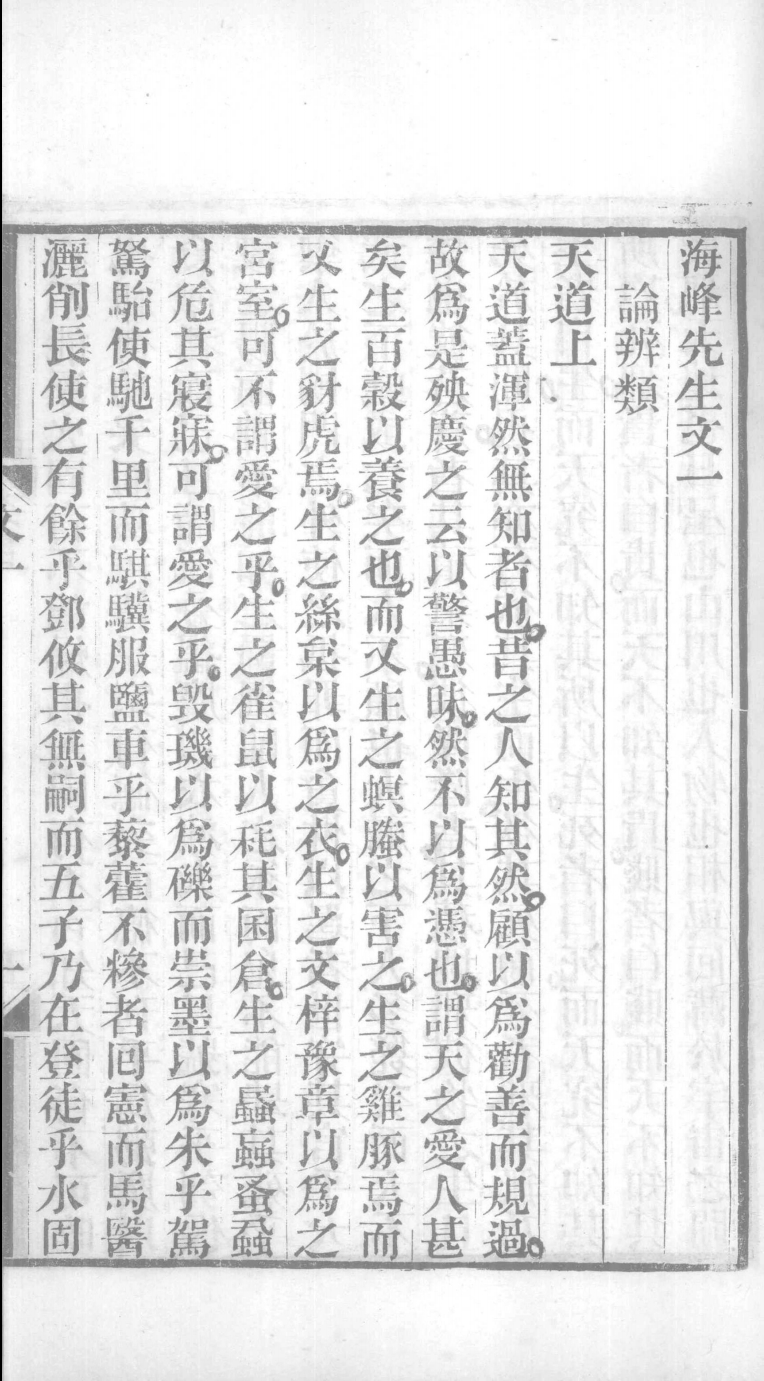 海峰先生文一
論辨類
天道上
天道蓋渾然無知者也昔之人知其然顧以爲勸善而規過
故爲是殃慶之云以警愚昧然不以爲憑也謂天之愛人甚
矣生百穀以養之也而又生之螟螣以害之生之雞豚焉而
又生之豺虎焉生之絲枲以爲之衣生之文梓豫章以爲之
宮室可不謂愛之乎生之雀鼠以耗其囷倉生之蟁蝱蚤蝨
以危其寢寐可謂愛之乎毀璣以爲礫而崇墨以爲朱乎駕
駑駘使馳千里而騏驥服鹽車乎藜藿不糝者回憲而馬醫
灑削長使之有餘乎鄧攸其無嗣而五子乃在登徒乎水固
文一
一